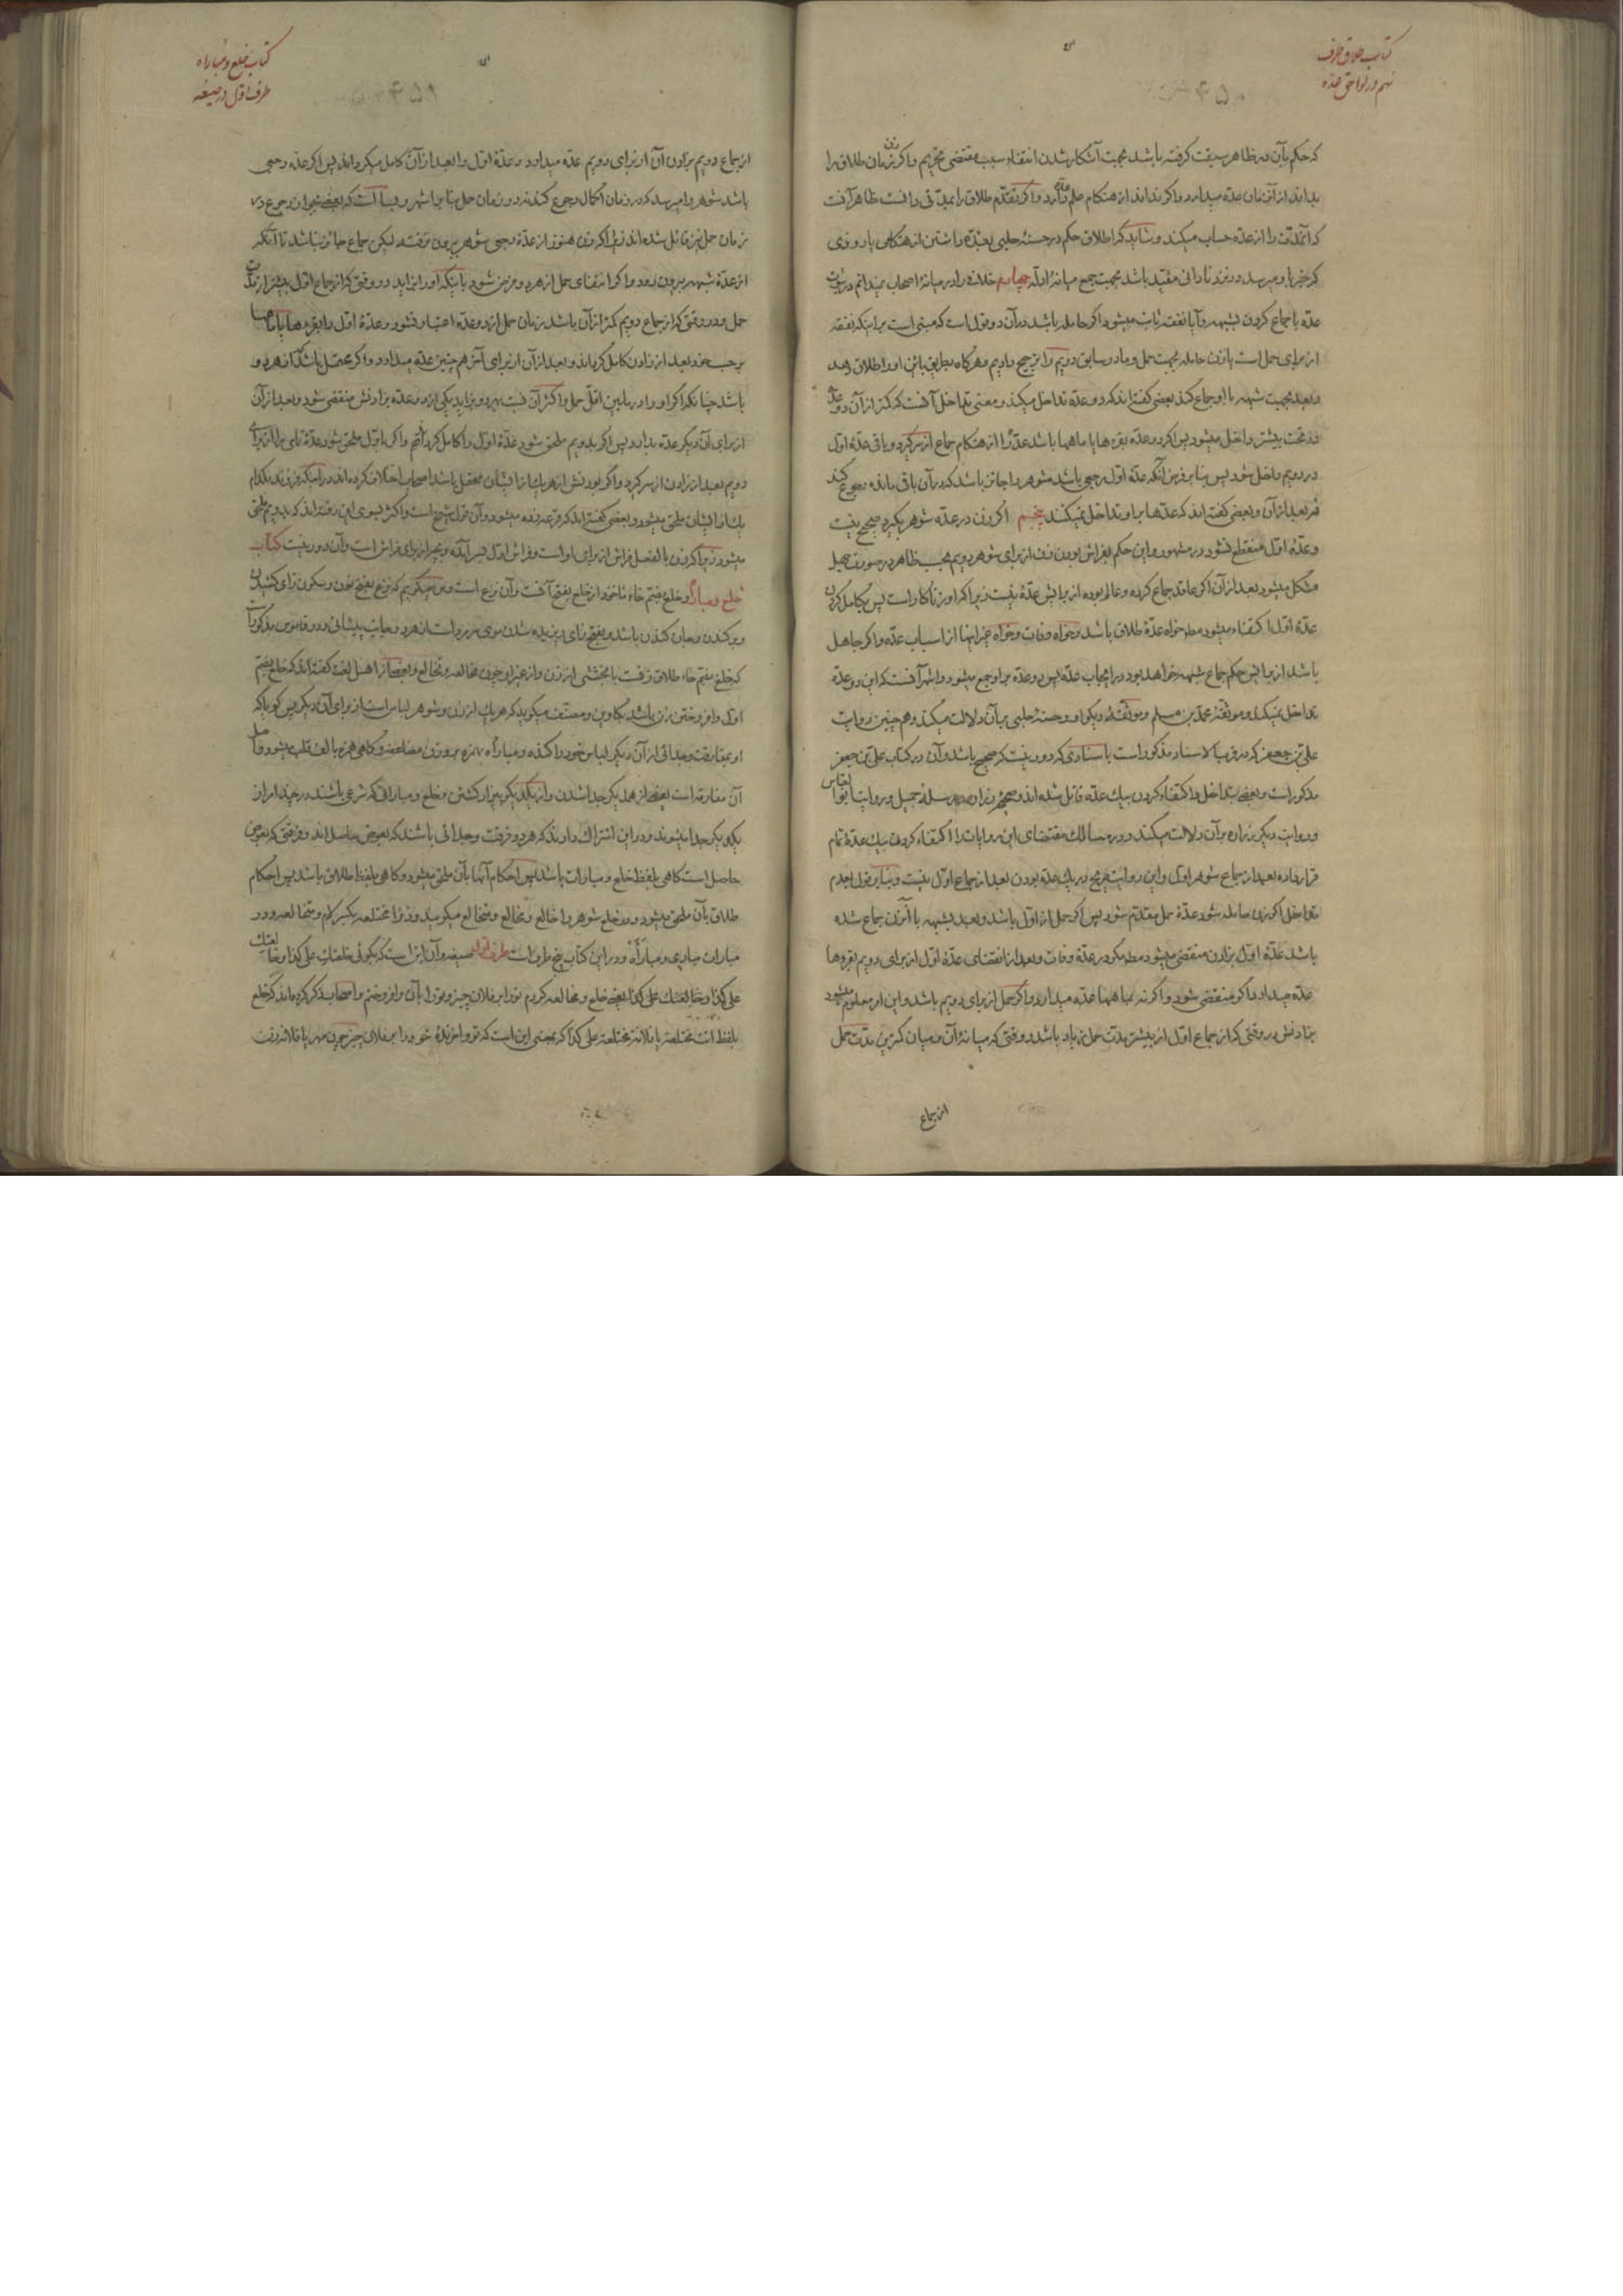 کتاب طلاق طرف
نهم در لواحق عده
۴۵۰
که حکم بآن در ظاهر سبقت گرفته باشد بجهت آشکار شدن انتفاء سبب مقتضی تحریم و اگر زن زمان طلاق را
بداند از آن زمان عده میدارد و اگر نداند از هنکام علم وتقدم طلاق را بمدتی دانست ظاهر آنست
که آنمدت را از عده حساب میکند و شاید که اطلاق حکم در حسنهٔ حلبی بعده داشتن از هنکامی یا روزی
که خبر باو میرسد در نزد نادانی مقید باشد بجهت جمع میانهٔ ادله چهارم خلاف را در میانهٔ اصحاب نمیدانم در ثبوت
عده با جماع کردن بشبهه و آیا نفقه ثابت میشود اگر حامله باشد در آن دو قول است که مبنی است بر اینکه نفقه
از برای حمل است یا زن حامله بجهت حمل و ما در سابق دویم را ترجیح دادیم و هرکاه بطریق باین او را طلاق دهد
و بعد بجهت شبهه با او جماع کند بعضی گفته‌اند که دو عده تداخل میکند و معنی تداخل آنست که کمتر از آن دو عده
در تحت بیشتر داخل میشود پس اگر دو عده بقرءها یا ماهها باشد عده را از هنکام جماع از سر گیرد و باقی عدهٔ اول
در دویم داخل شود پس بنا بر فرض آنکه عده اول رجعی باشد شوهر را جایز باشد که در آن باقی مانده رجوع کند
نه بعد از آن و بعضی گفته‌اند که عدتها با او تداخل نمیکند پنجم اگر زن در عده شوهر بگیرد صحیح نیست
و عدهٔ اول منقطع نشود در مشهور و این حکم بفراش بودن زن از برای شوهر دویم بحسب ظاهر در صورت جهل
مشکل میشود بعد از آن اگر عاقد جماع کرده و عالم بوده از برایش عدهٔ نیست زیرا که او زناکار است پس بکامل کردن
عدهٔ اول اکتفاء میشود مط خواه عدهٔ طلاق باشد و خواه وفات و خواه غیر اینها از اسباب عده و اگر جاهل
باشد از برایش حکم جماع شبهه خواهد بود در ایجاب عده پس دو عده بر او جمع میشود و اشهر آنست که این دو عده
تداخل نمیکند و موثقهٔ محمد بن مسلم و موثقهٔ دیگر او و حسنهٔ حلبی بر آن دلالت میکند و هم چنین روایت
علی بن جعفر که در قرب الاسناد مذکور است باسنادی که دور نیست که صحیح باشد و آن در کتاب علی بن جعفر
مذکور است و بعضی بتداخل و اکتفاء کردن بیک عده قائل شده‌اند و صحیحهٔ زراره و مرسلهٔ جمیل و روایت ابو العباس
و روایت دیگر زراره بر آن دلالت میکند و در مسالک مقتضای این روایات را اکتفاء کردن بیک عدهٔ تمام
قرار داده بعد از جماع شوهر اول و این روایت صریح در یک عده بودن بعد از جماع اول نیست و بنا بر قول بعدم
تداخل اگر زن حامله شود عدهٔ حمل مقدم شود پس اگر حمل از اول باشد و بعد بشبهه با آنزن جماع شده
باشد عدهٔ اول بزادن منقضی میشود مط مگر در عدهٔ وفات و بعد از انقضای عدهٔ اول از برای دویم بقرءها
عده میدارد اگر منقضی شود و اگر نه بماهها عده میدارد و اگر حمل از برای دویم باشد و این از معلوم میشود
بزادنش در وقتی که از جماع اول از بیشتر مدت حمل زیاد باشد و وقتی که میانهٔ آن و میان کمترین مدت حمل
از جماع
کتاب خلع و مباراه
طرف اول در صیغه
۴۵۱
از جماع دویم بزادن آن از برای دویم عده میدارد و عدهٔ اول را بعد از آن کامل میگرداند پس اگر عده رجعی
باشد شوهر را میرسد که در زمان اکمال رجوع کند نه در زمان حمل بنا بر اشهر و بسا است که بعضی بجواز رجوع در
زمان حمل نیز قائل شده‌اند زیرا که زن هنوز از عدهٔ رجعی شوهر بیرون نرفته لیکن جماع جائز نباشد تا آنکه
از عدهٔ شبهه بیرون رود و اگر انتفای حمل از هر دو فرض شود باینکه او را بزاید در وقتی که از جماع اول بیشتر از مدت
حمل و در وقتی که از جماع دویم کمتر از آن باشد زمان حمل از دو عده اعتبار نشود و عدهٔ اول را بقرءها یا ماهها
بر حسب خود بعد از زادن کامل گرداند و بعد از آن از برای آخر هم چنین عده میدارد و اگر محتمل باشد که از هر دو
باشد چنانکه اگر او را در مابین اقل حمل و اکثر آن نسبت بهر دو بزاید یکی از دو عده بزادنش منقضی شود و بعد از آن
از برای آن دیگر عده بدارد پس اگر بدویم ملحق شود عدهٔ اول را کامل گرداند و اگر باول ملحق شود عدهٔ تامی را از برای
دویم بعد از زادن از سر گیرد و اگر بودنش از هر یک از ایشان محتمل باشد اصحاب اختلاف کرده‌اند در اینکه فرزند بکدام
یک از ایشان ملحق میشود و بعضی گفته‌اند که قرعه زده میشود و آن قول شیخ است و اکثر بسوی این رفته‌اند که بدویم ملحق
میشود زیرا که زن بالفعل فراش از برای او است و فراش اول بسر آمده و بچه از برای فراش است و آن دور نیست کتاب
خلع و مباراة و خلع بضم خاء ماخوذ از خلع بفتح آنست و آن نزع است و ما میگوییم که نزع بفتح نون و سکون زای کشیدن
و برکندن و جان کندن باشد و بفتح زای ریزیده شدن موی سر و است از هر دو جانب پیشانی و در قاموس مذکور است
که خلع بضم خاء طلاق زنست با بخششی از زن و از غیر او چون مخالعه و تخالع و بعضی از اهل لغت گفته‌اند که خلع بضم
اول وا فروختن زن باشد بکاوین و مصنف میگوید که هر یک از زن و شوهر لباس است از برای آن دیگر پس گویا که
او بمفارقت و جدائی از آن دیگر لباس خود را کنده و مباراه بهمزه بر وزن مفاعله و گاهی همزه بالف قلب میشود و اصل
آن مفارقه است یعنی از همدیگر جدا شدن و از یکدیگر بیزار گشتن و خلع و مباراتی که شرعی باشند در چند امر از
یکدیگر جدا میشوند و در این اشتراک دارند که هر دو فرقت و جدائی باشند که بعوض حاصل‌اند و فرقتی که بعوض
حاصل است گاهی بلفظ خلع و مبارات باشد پس احکام آنها بآن ملحق میشود و گاهی بلفظ طلاق باشد پس احکام
طلاق بآن ملحق میشود و در خلع شوهر را خالع و تخالع و متخالع میگویند و زن را مختلعه بکسر لام و متخالعه و در
مبارات مباری و مبارأه و در این کتاب پنج طرف است طرف اول صیغه و آن این است که بگوئی خلعتک علی کذا و خالعتک
علی کذا و خالعتک علی کذا یعنی خلع و مخالعه کردم تو را بر فلان چیز و تو را بآن وا فروختم و اصحاب ذکر کرده‌اند که خلع
بلفظ انت مختلعه یا فلانة مختلعة علی کذا که بمعنی این است که تو وا خرندهٔ خود را بر فلان چیز چون مهر یا فلانه زنت